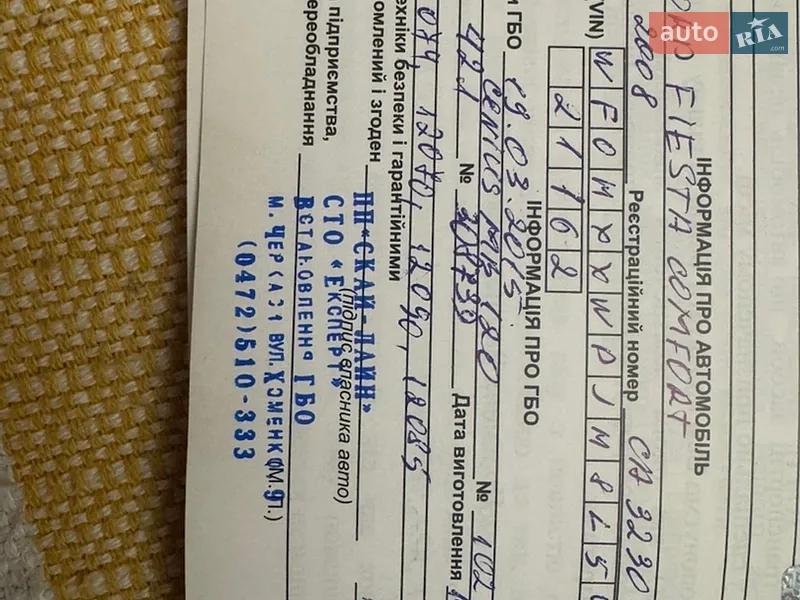 auto RIA.com
ІНФОРМАЦІЯ ПРО АВТОМОБІЛЬ
FIESTA COMFORT
2008 Реєстраційний номер СА 3230
(VIN) WF0MXXWPJM8L5
21162
ІНФОРМАЦІЯ ПРО ГБО
ГБО 19.03.2015
Genius MB 1200 № 102
421 № Дата виготовлення
12070, 12090, 12085
техніки безпеки і гарантійними
омлений і згоден
(підпис власника авто)
підприємства,
ереобладнання
(М.П.)
ПП «СКАЙ-ЛАЙН»
СТО «ЕКСПЕРТ»
ВСТАНОВЛЕННЯ ГБО
м. ЧЕРКАСИ вул. ХОМЕНКО
(0472)510-333